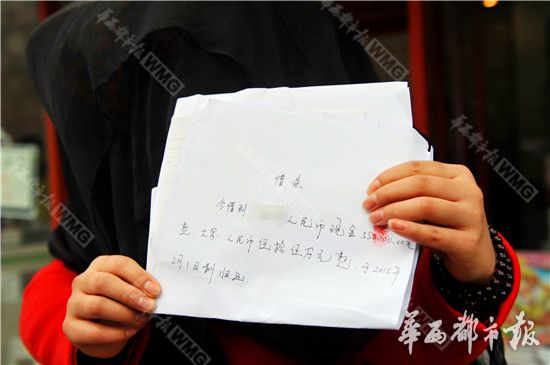 借条
今借到 人民币现金550000.00元
整 大写：人民币伍拾伍万元整，于2015年
2月1日前归还。
华西都市报
华西都市报 WMG
华西都市报 WMG
华西都市报 WMG
华西都市报 WMG